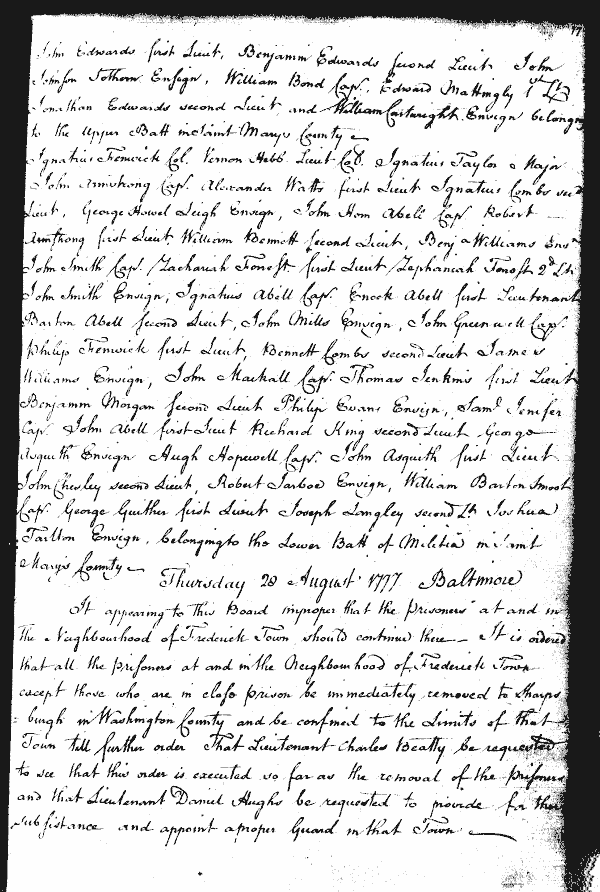 77
John Edwards first Lieut, Benjamin Edwards second Lieut John
Johnson Sothorn Ensign, William Bond Cap. Edward Mattingly 1st Lt
Jonathan Edwards second Lieut and William Cartwright Ensign belonging
to the Upper Batt in Saint Marys County
Ignatius Fenwick Col. Vernon Hebb Lieut Col. Ignatius Taylor Major
John Armstrong Cap. Alexander Watts first Lieut Ignatius Combs secd
Lieut, George Howel Leigh Ensign, John Horn Abell Cap Robert
Armstrong first Lieut William Bennett second Lieut, Benja Williams Ensn
John Smith Cap. Zachariah Forrest first Lieut Zephaniah Forrest 2d Lt
John Smith Ensign, Ignatius Abell Cap. Enock Abell first Lieutenant
Barton Abell second Lieut, John Mills Ensign, John Greenwell Cap.
Philip Fenwick first Lieut, Bennett Combs second Lieut James
Williams Ensign, John Mackall Cap. Thomas Jenkins first Lieut
Benjamin Morgan second Lieut Philip Evans Ensign, Saml Jenifer
Cap. John Abell first Lieut Richard King second Lieut George
Asquith Ensign Hugh Hopewell Cap. John Asquith first Lieut
John Chesley second Lieut, Robert Jarboe Ensign, William Barton Smoot
Cap. George Guither first Lieut Joseph Langley second Lt Joshua
Tarlton Ensign, belonging to the Lower Batt of Militia in Saint
Marys County
Thursday 28 August 1777 Baltimore
It appearing to this Board improper that the prisoners at and in
the Neighbourhood of Frederick Town should continue there It is ordered
that all the prisoners at and in the Neighbourhood of Frederick Town
except those who are in close prison be immediately removed to Sharps
= burgh in Washington County and be confined to the Limits of that
Town till further order That Lieutenant Charles Beatty be requested
to see that this order is executed so far as the removal of the prisoners
and that Lieutenant Daniel Hughs be requested to provide for their
subsistance and appoint a proper Guard in that Town